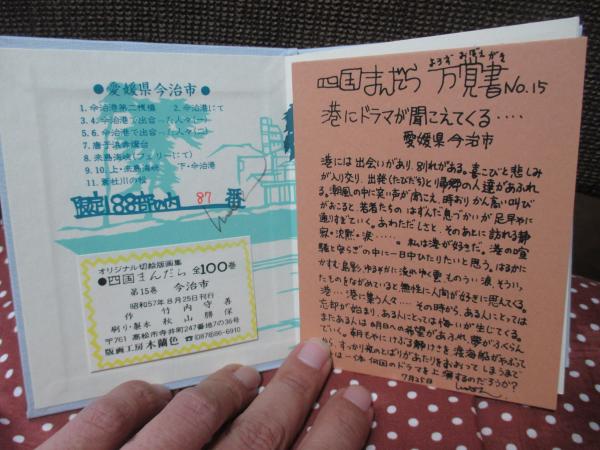 ●愛媛県今治市●
1.今治港第二桟橋 2.今治港にて
3.4.今治港で出合った人々(一)
5.6.今治港で出合った人々(二)
7.唐子浜赤燈台
8.来島海峡(フェリーにて)
9.10.上・来島海峡 下・今治港
11.衣干山の松
限定188部の内 87 番
オリジナル切絵版画集
●四国まんだら 全100巻
第15巻 今治市
昭和57年8月25日刊行
作 竹内守善
刷り・製本 秋山勝保
〒761 高松市寺井町247番地7の36号
版画工房 木蘭色 ☎(0878)86-6910
よろず おぼえがき
四国まんだら 万覚書 No.15
港にドラマが聞こえてくる‥‥
愛媛県今治市
港には出会いがあり、別れがある。喜こびと悲しみ
が入り交り、出発(たびだち)と帰郷の人達があふれ
る。潮風の中に笑い声が聞こえ、時おりかん高い叫び
があこると、若者たちのはずんだ息づかいが足早やに
通りすぎていく。あわただしさと、そのあとに訪れる静
寂・沈黙・涙‥‥。私は港が好きだ。港の喧
騒と安らぎの中に一日中ひたりたいと思う。はるかに
かすむ島影、ゆるやかに流れゆく雲、ものうい波、そういっ
たものをながめていると無性に人間が好きに思えてくる。
港‥‥港に集う人々‥‥その時から、ある人にとっては
忘却が始まり、ある人にとっては悔いが生じてくる。
またある人は明日への希望があふれ、夢がふくらん
でいく。朝もやにけぶる静けさを渡海船がやぶって
から、すっかり夜のとばりがあたりをおおってしまうまで
は一体何回のドラマを上演するのだろうか?
7月25日